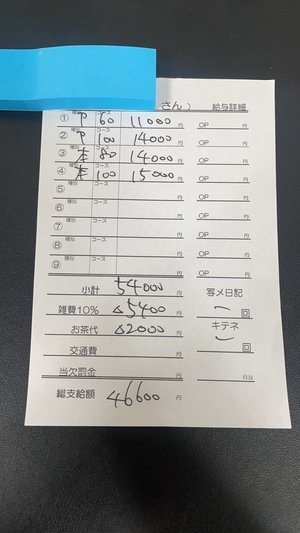 さん） 給与詳細
① 種別 P コース 60 11000 円 OP 円
② 種別 P コース 100 14000 円 OP 円
③ 種別 本 コース 80 14000 円 OP 円
④ 種別 本 コース 100 15000 円 OP 円
⑤ 種別 コース 円 OP 円
⑥ 種別 コース 円 OP 円
⑦ 種別 コース 円 OP 円
⑧ 種別 コース 円 OP 円
⑨ 種別 コース 円 OP 円
小計 54000 円 写メ日記
雑費10% △5400 円 回
お茶代 △2000 円 キテネ
交通費 円 回
当欠罰金 円 日分
総支給額 46600 円